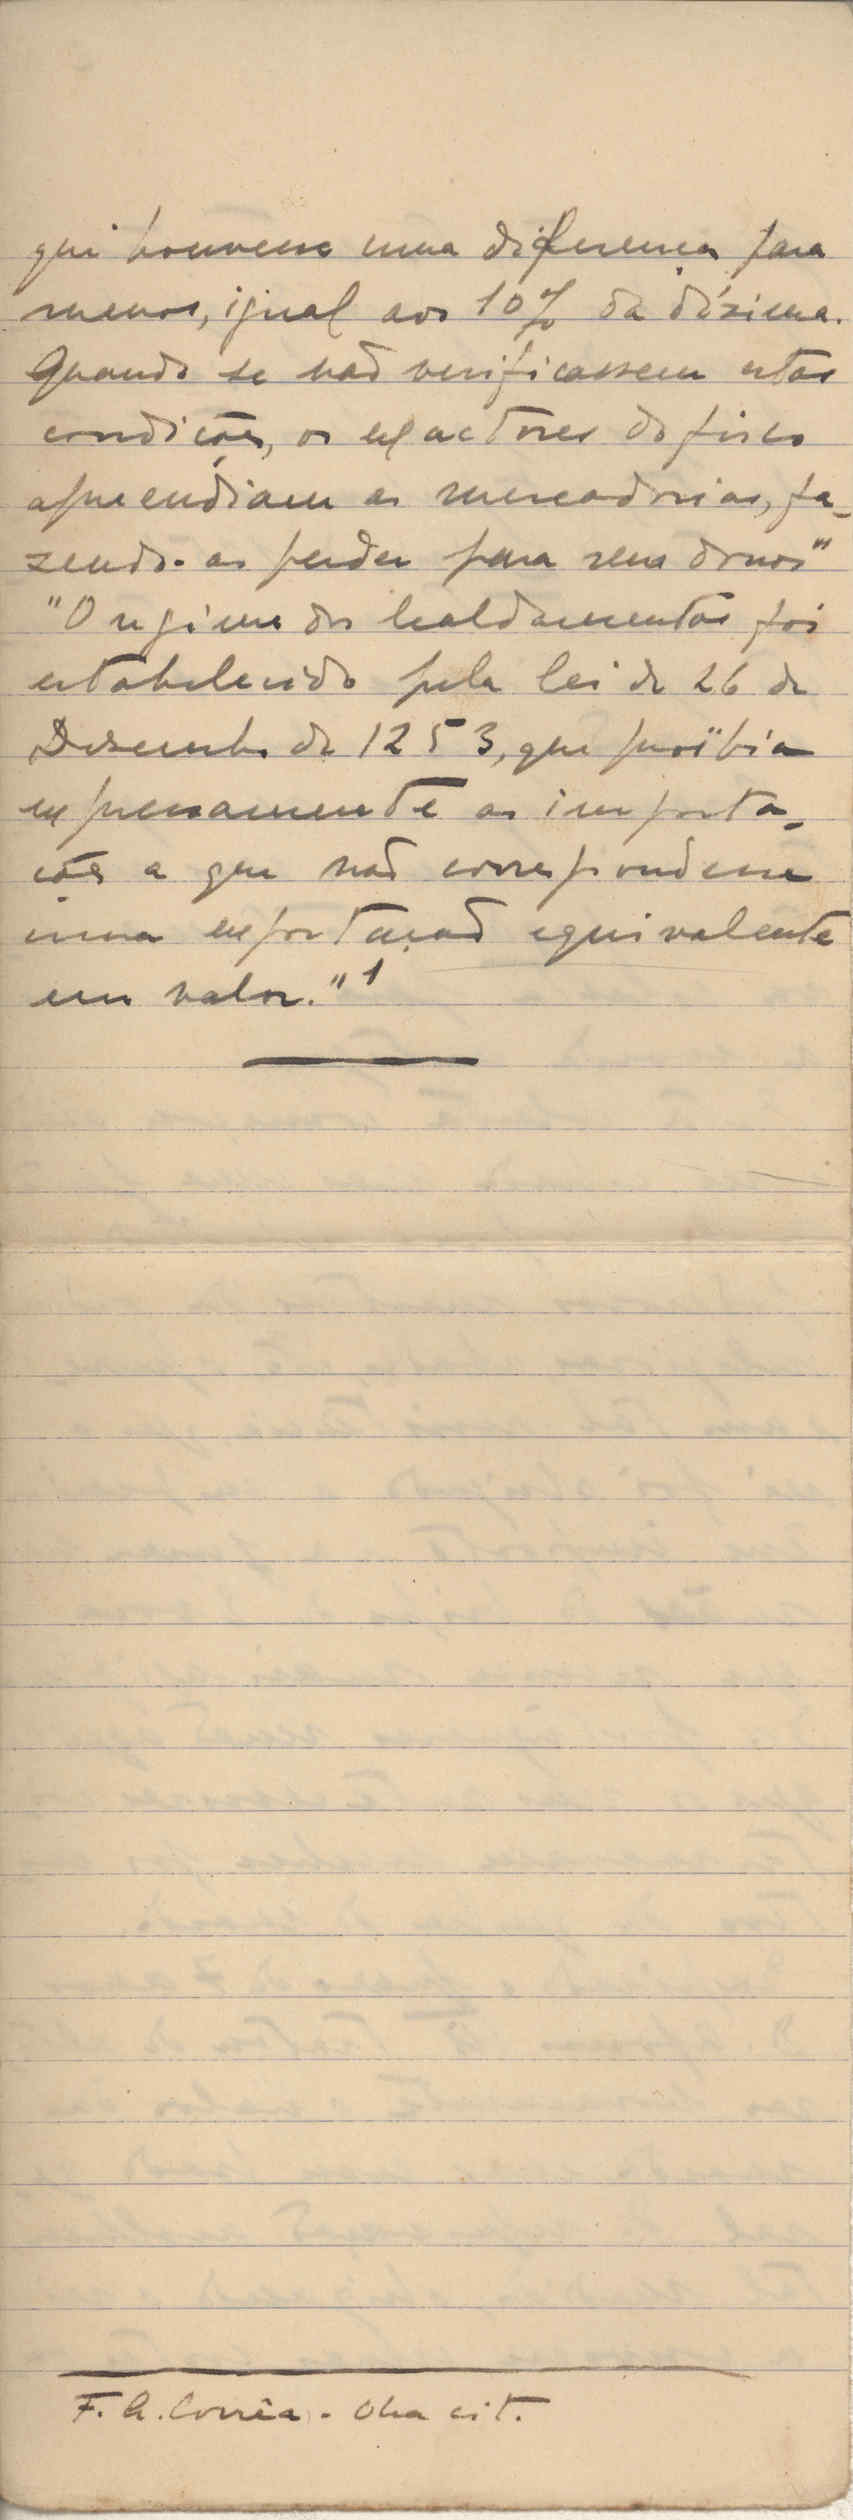 que houvesse uma diferença para
menos, igual aos 10% da dízima.
Quando se não verificassem estas
condições, os exactores do fisco
apreendiam as mercadorias, fa-
zendo-as perder para seus donos"
"O regime dos haldamentos foi
estabelecido pela lei de 26 de
Dezembro de 1253, que proïbia
expressamente as importa-
ções a que não correspondesse
uma exportação equivalente
em valor." 1
F. A. Corrêa - Obra cit.